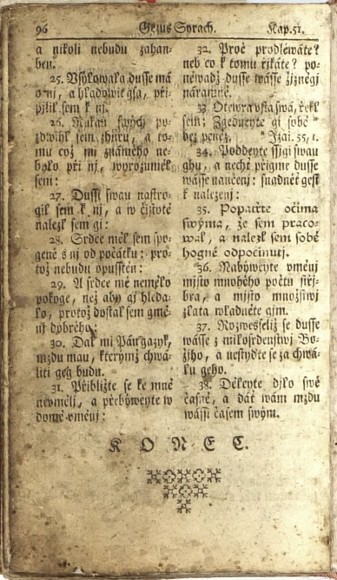 96 Gezus Syrach. Kap. 51.
a nikoli nebudu zahan-
ben.
25. Vsylowala dusse má
o ni, a hladowit gsa, při-
pilil sem k nj.
26. Rukau swých po-
zdwihl sem zhůru, a to-
mu což mi známého ne-
bylo při nj, wyrozuměl
sem:
27. Dussi swau nastro-
gil sem k nj, a w čistotě
nalezl sem gi:
28. Srdce měl sem spo-
gené s nj od počátku: pro-
tož nebudu opusstěn:
29. A srdce mé nemělo
pokoge, než aby gi hleda-
lo, protož dostal sem gmě-
nj dobrého:
30. Dal mi Pán gazyk,
mzdu mau, kterýmž chwá-
liti geg budu.
31. Přibližte se ke mně
neuměli, a přebýweyte w
domě uměnj:
32. Proč prodléwáte?
neb co k tomu řjkáte? po-
něwadž dusse wásse žjznégi
náramně.
33. Otewřel usta swá, a řekl
sem: Zgedneyte gi sobě
bez peněz. * Izai. 55, 1.
34. Poddeyte ssigi swau
ghu, a nechť přigme dusse
wásse naučenj: snadněť gest
k nalezenj:
35. Popatřte očima
swýma, že sem praco-
wal, a nalezl sem sobě
hogné odpočinutj.
36. Nabýweyte uměnj
mjsto mnohého počtu střj-
bra, a mjsto množstwj
zlata wládněte gjm.
37. Rozwesseliž se dusse
wásse z milosrdenstwj Bo-
žjho, a nestyďte se za chwá-
lu geho.
38. Děleyte djlo swé
časně, a dáť wám mzdu
wássi časem swým.
KONEC.